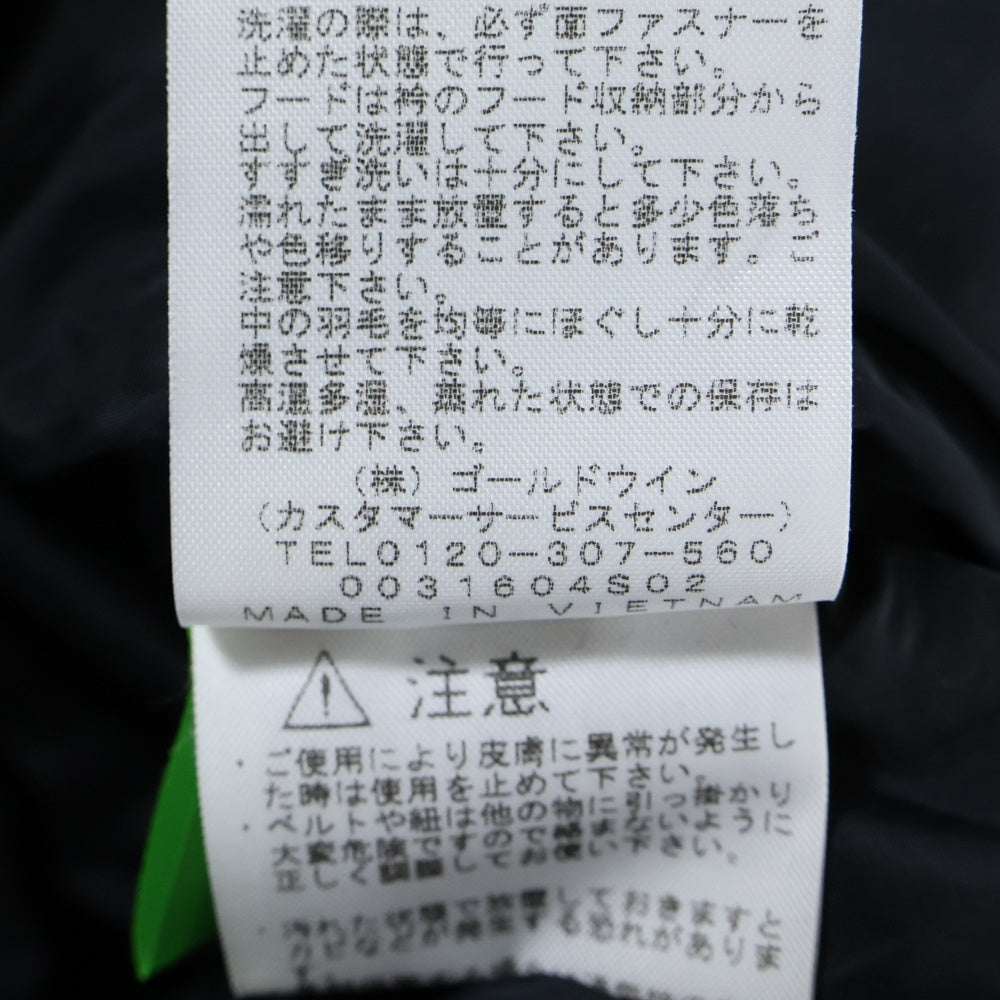 洗濯の際は、必ず面ファスナーを
止めた状態で行って下さい。
フードは衿のフード収納部分から
出して洗濯して下さい。
すすぎ洗いは十分にして下さい。
濡れたまま放置すると多少色落ち
や色移りすることがあります。ご
注意下さい。
中の羽毛を均等にほぐし十分に乾
燥させて下さい。
高温多湿、蒸れた状態での保存は
お避け下さい。
(株)ゴールドウイン
(カスタマーサービスセンター)
TEL0120-307-560
0031604S02
MADE IN VIETNAM
注意
・ご使用により皮膚に異常が発生し
た時は使用を止めて下さい。
・ベルトや紐は他の物に引っ掛かり
大変危険ですので絡まないように
正しく調節してお使い下さい。
・汚れた状態で放置しておきますと
カビなどが発生する恐れがありま